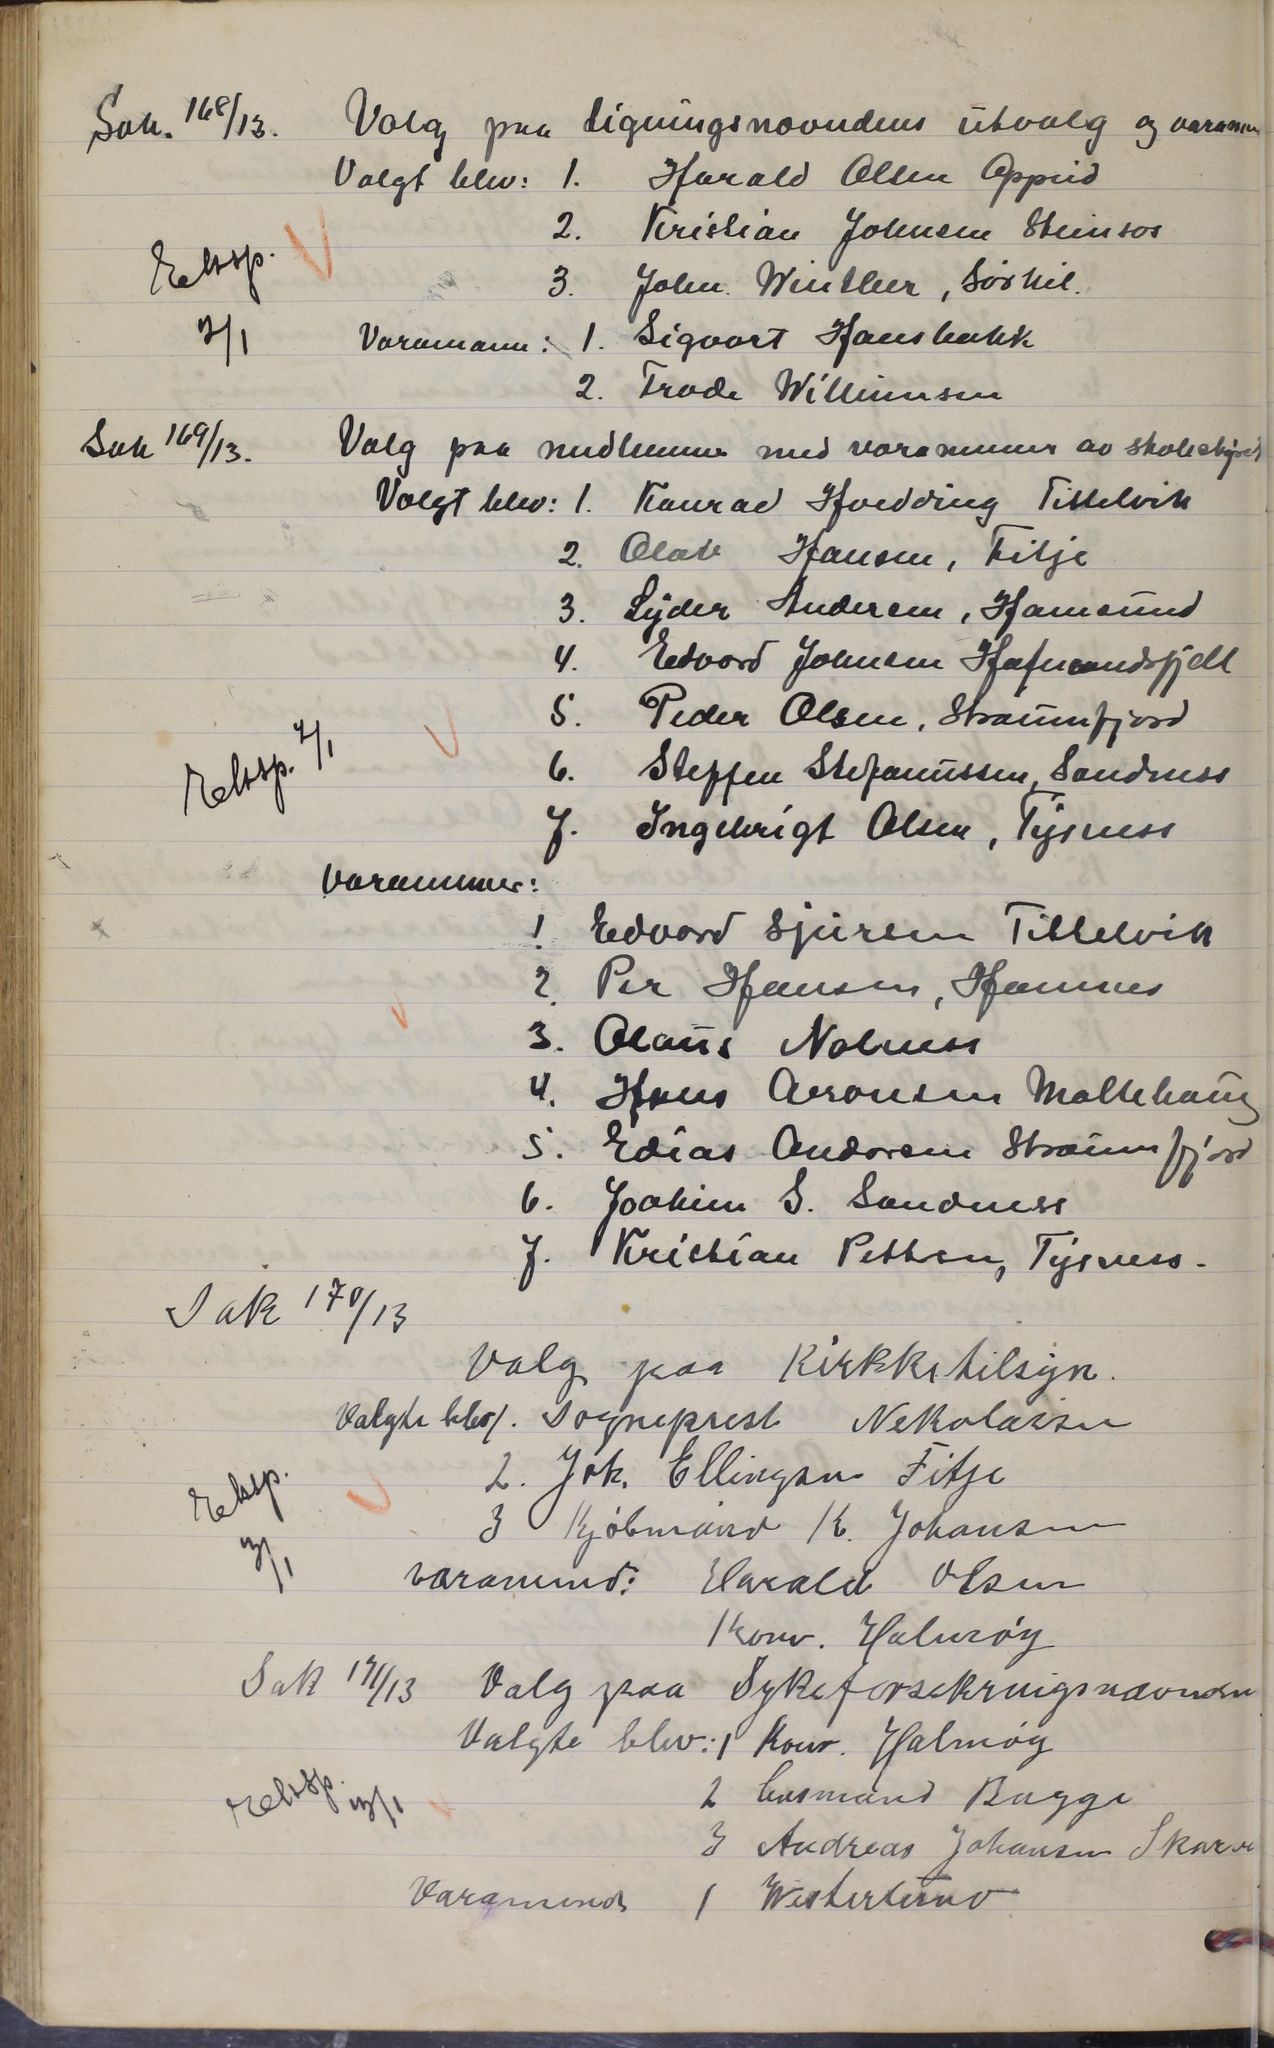 Sak. 168/13. Valg paa Ligningsnævndens utvalg og varamen
Valgt blev: 1. Harald Olsen Oppeid
2. Kristian Johnsen Steinsos
Eksp. 3. John Winther, Sørkil.
7/1 Varamænn: 1. Sigvart Hansbakk
2. Frode Williumsen
Sak 169/13. Valg paa medlemmer med varammener av skolestyret
Valgt blev: 1. Konrad Hvedding Tittelvik
2. Olak Hansen, Fitje
3. Lyder Andersen, Hamsund
4. Edvard Johnsen Hafmandsfjell
5. Peder Olsen, Straumfjord
Eksp. 7/1 6. Steffen Stefanussen, Sandness
7. Ingebrigt Olsen, Tysness
Varammner:
1 Edvard Sjursen Tittelvik
2. Per Hansen, Hamnes
3. Olaus Nolness
4. Hans Aronsen Moltehaug
5. Edias Andorsen Straumfjord
6. Joakim S. Sandness
7. Kristian Pettsen, Tysness.
Sak 170/13
Valg paa Kirkketilsyn.
Valgte blev 1. Sogneprest Nekolaisen
Eksp. 2. Joh. Ellingsen Fitje
3 Kjøbmand K. Johansen
7/1 varamend: Harald Olsen
Konr. Halmøy
Sak 171/13 Valg paa Sykeforsekringsnævnden
Valgte blev: 1 Konr. Halmøy
Eksp. 7/1 2 Lensmand Bugge
3 Andreas Johansen Skarv
Varamend 1 Westerlund